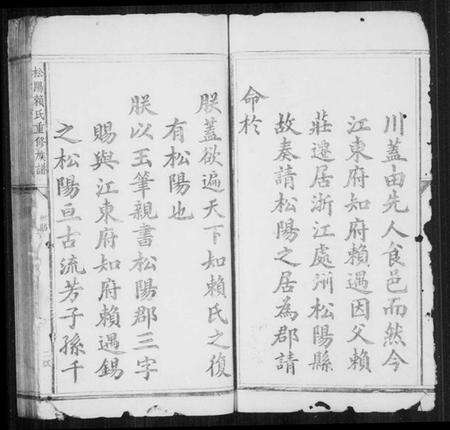 川蓋由先人食邑而然今
江東府知府賴遇因父賴
莊遷居浙江處州松陽縣
故奏請松陽之居為郡請
命於
朕蓋欲遍天下知賴氏之復
有松陽也
朕以玉筆親書松陽郡三字
賜與江東府知府賴遇錫
之松陽亘古流芳子孫千
松陽賴氏重修族譜